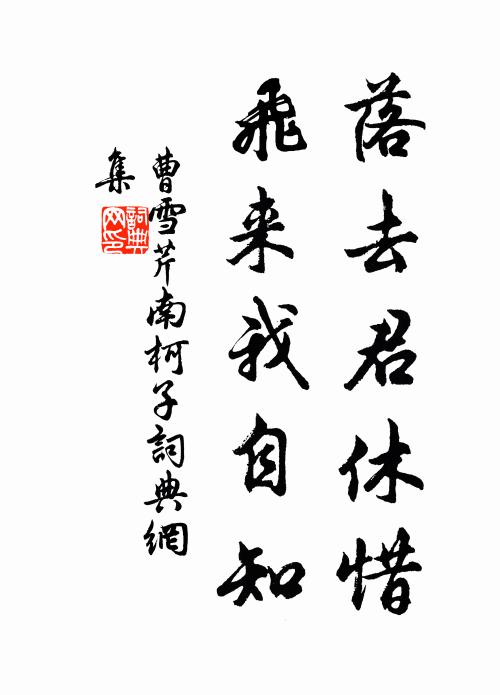 落去君休惜
飛来我自知
曹雪芹南柯子詞典網
集
詞典
网印